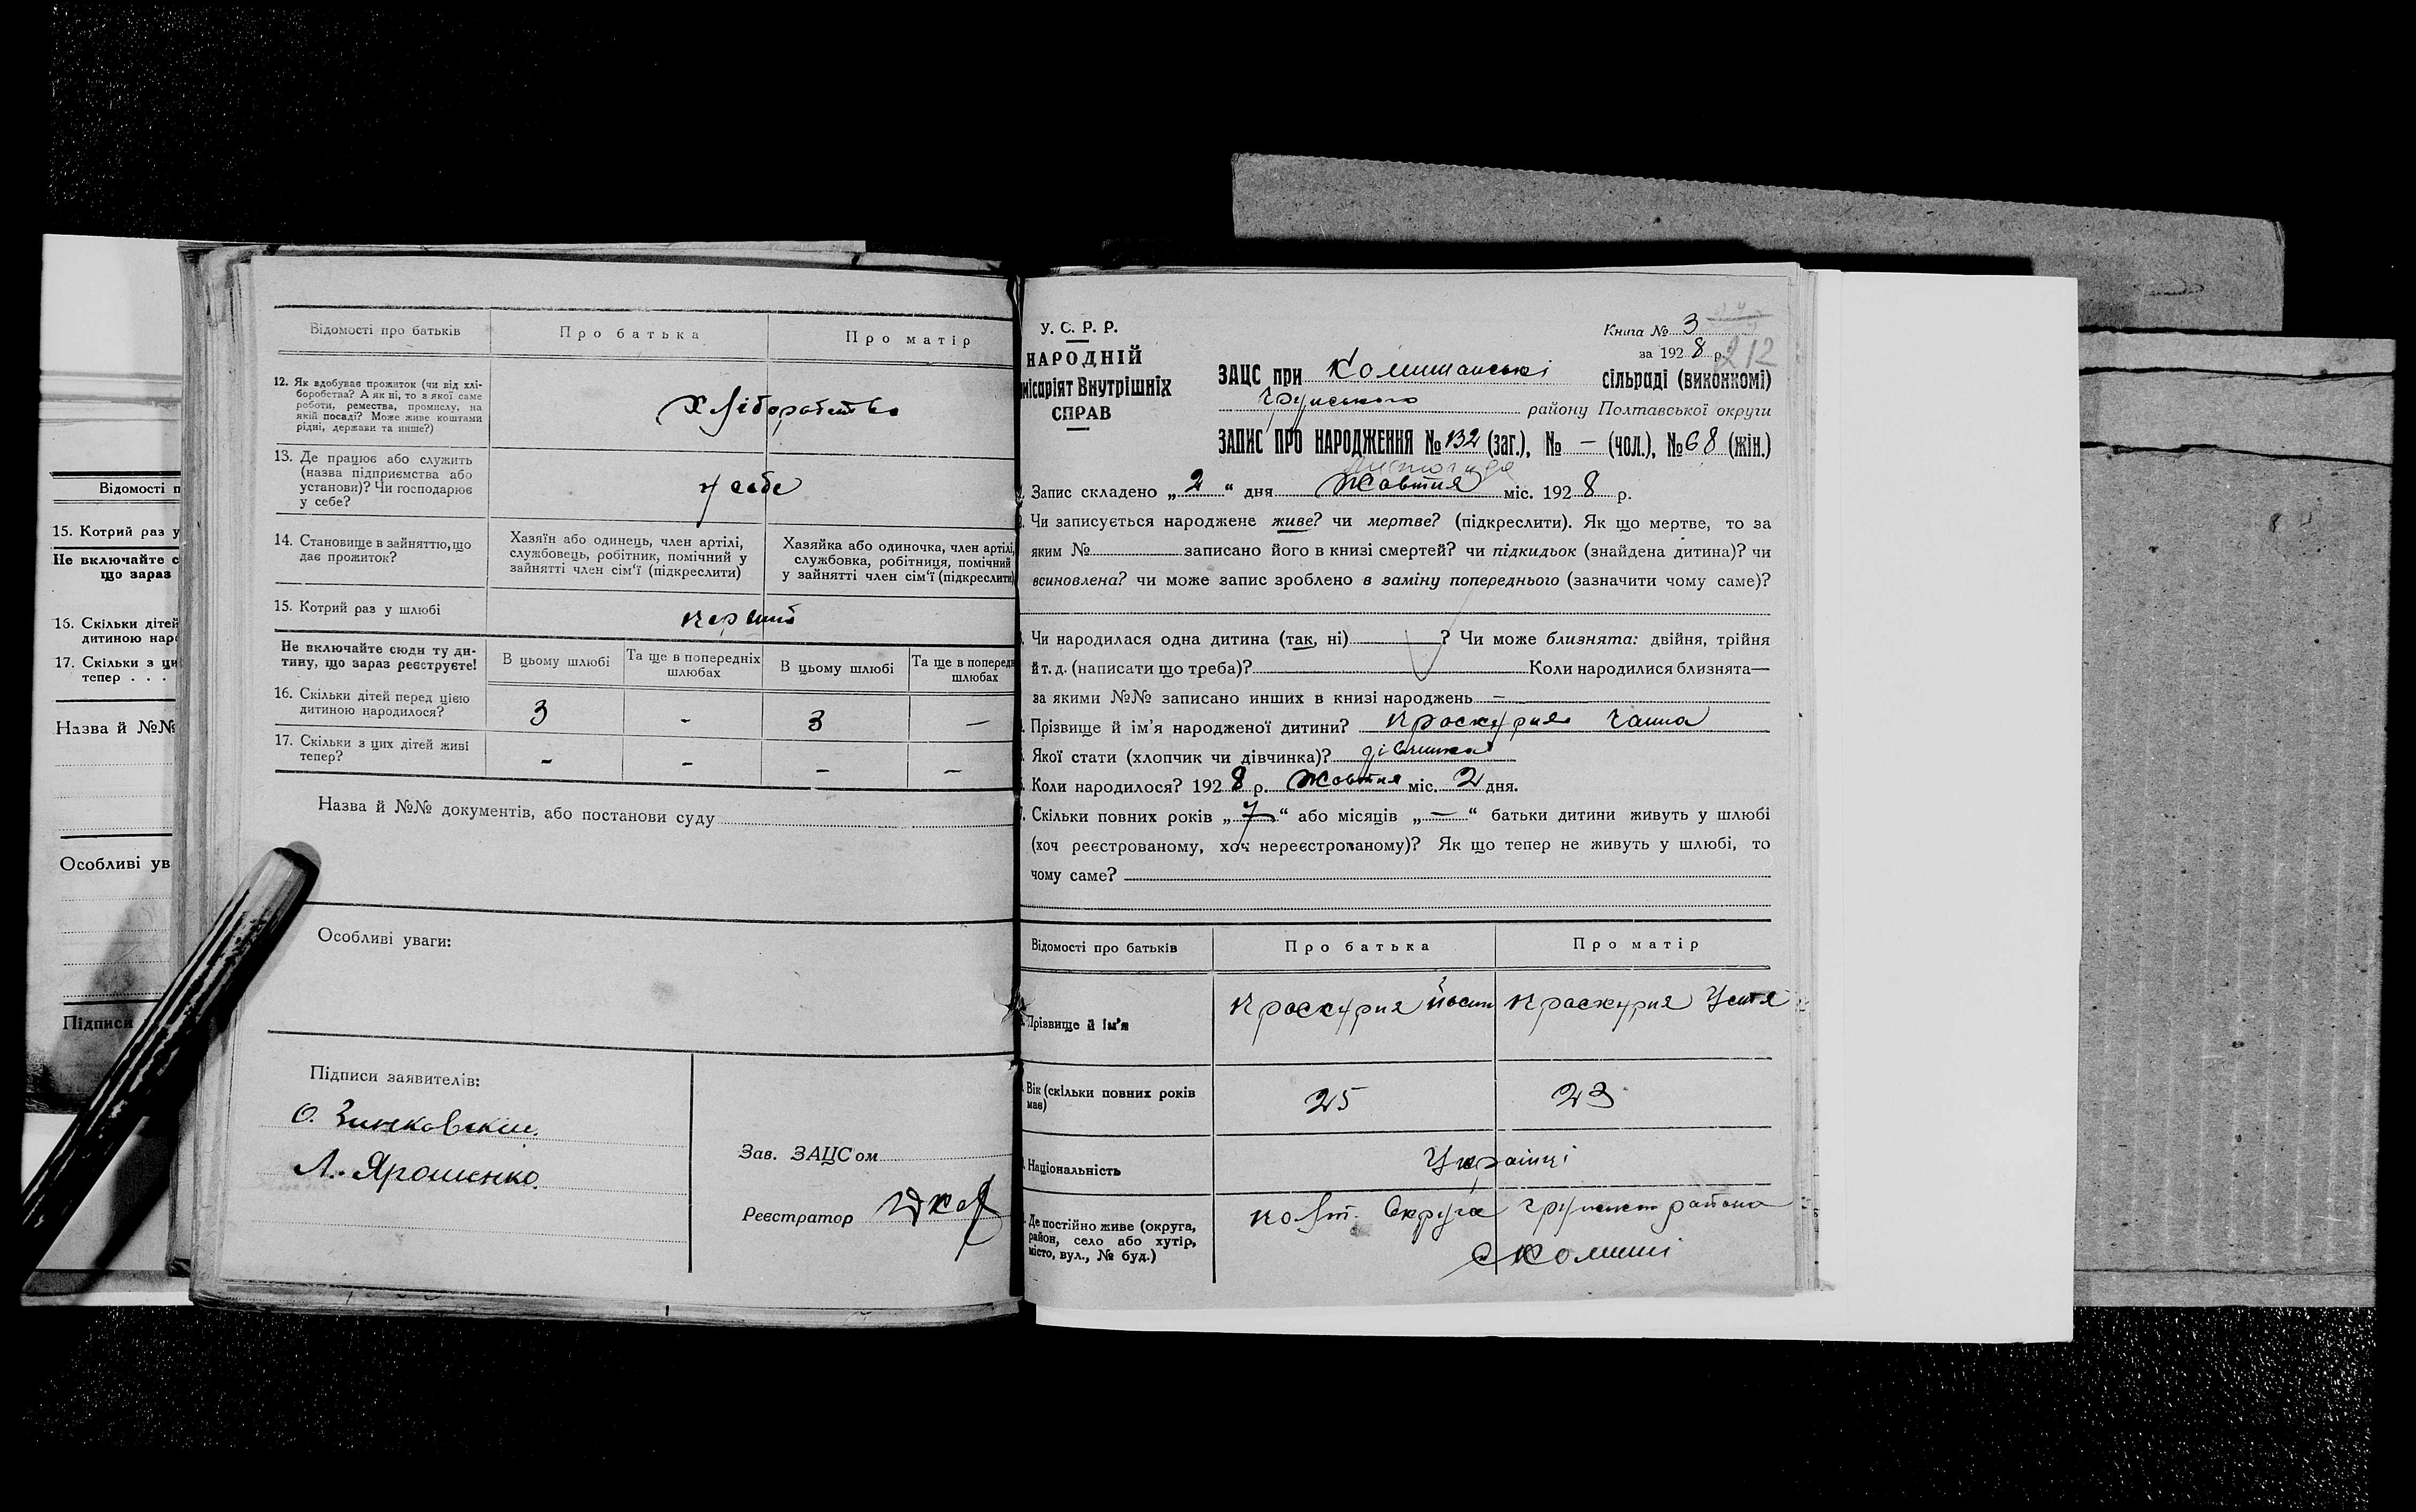 Відомості п
15. Котрий раз у
Не включайте с
що зараз
16. Скільки дітей
дитиною наро
17. Скільки з ци
тепер . . .
Назва й №№
Особливі ув
Підписи
Відомості про батьків
Про батька
Про матір
12. Як здобуває прожиток (чи від хлі-
боробства? А як ні, то з якої саме
роботи, ремества, промислу, на
якій посаді? Може живе коштами
рідні, держави та инше?)
Хліборобство
13. Де працює або служить
(назва підприємства або
установи)? Чи господарює
у себе?
У себе
14. Становище в зайняттю, що
дає прожиток?
Хазяїн або одинець, член артілі,
службовець, робітник, помічний у
зайнятті член сім'ї (підкреслити)
Хазяйка або одиночка, член артілі,
службовка, робітниця, помічний
у зайнятті член сім'ї (підкреслити)
15. Котрий раз у шлюбі
перший
Не включайте сюди ту ди-
тину, що зараз реєструєте!
В цьому шлюбі
Та ще в попередніх
шлюбах
В цьому шлюбі
Та ще в поперед
шлюбах
16. Скільки дітей перед цією
дитиною народилося?
3 - 3 —
17. Скільки з цих дітей живі
тепер?
- - - -
Назва й №№ документів, або постанови суду
Особливі уваги:
Підписи заявителів:
О. Зинковский
Л. Ярошенко
Зав. ЗАЦС'ом
Реєстратор
У. С. Р. Р.
НАРОДНІЙ
місаріят Внутрішніх
СПРАВ
Книга № 3
за 1928 р.
212
ЗАЦС при Комишанські сільраді (виконкомі)
Грунського району Полтавської округи
ЗАПИС ПРО НАРОДЖЕННЯ № 132 (заг.), № — (чол.), № 68 (жін.)
Запис складено „2“ дня Жовтня міс. 1928 р.
Чи записується народжене живе? чи мертве? (підкреслити). Як що мертве, то за
яким № записано його в книзі смертей? чи підкидьок (знайдена дитина)? чи
всиновлена? чи може запис зроблено в заміну попереднього (зазначити чому саме)?
Чи народилася одна дитина (так, ні) ? Чи може близнята: двійня, трійня
й т. д. (написати що треба)? Коли народилися близнята—
за якими №№ записано инших в книзі народжень —
Прізвище й ім'я народженої дитини? Проскурня Ганна
Якої стати (хлопчик чи дівчинка)? дівчинка
Коли народилося? 1928 р. Жовтня міс. 2 дня.
Скільки повних років „7“ або місяців „—“ батьки дитини живуть у шлюбі
(хоч реєстрованому, хоч нереєстрованому)? Як що тепер не живуть у шлюбі, то
чому саме?
Відомості про батьків
Про батька
Про матір
Прізвище й ім'я
Проскурня Йосип
Проскурня Устя
Вік (скільки повних років
має)
25
23
Національність
Українці
Де постійно живе (округа,
район, село або хутір,
місто, вул., № буд.)
Полт. Округа Грунськ района
с Комиші